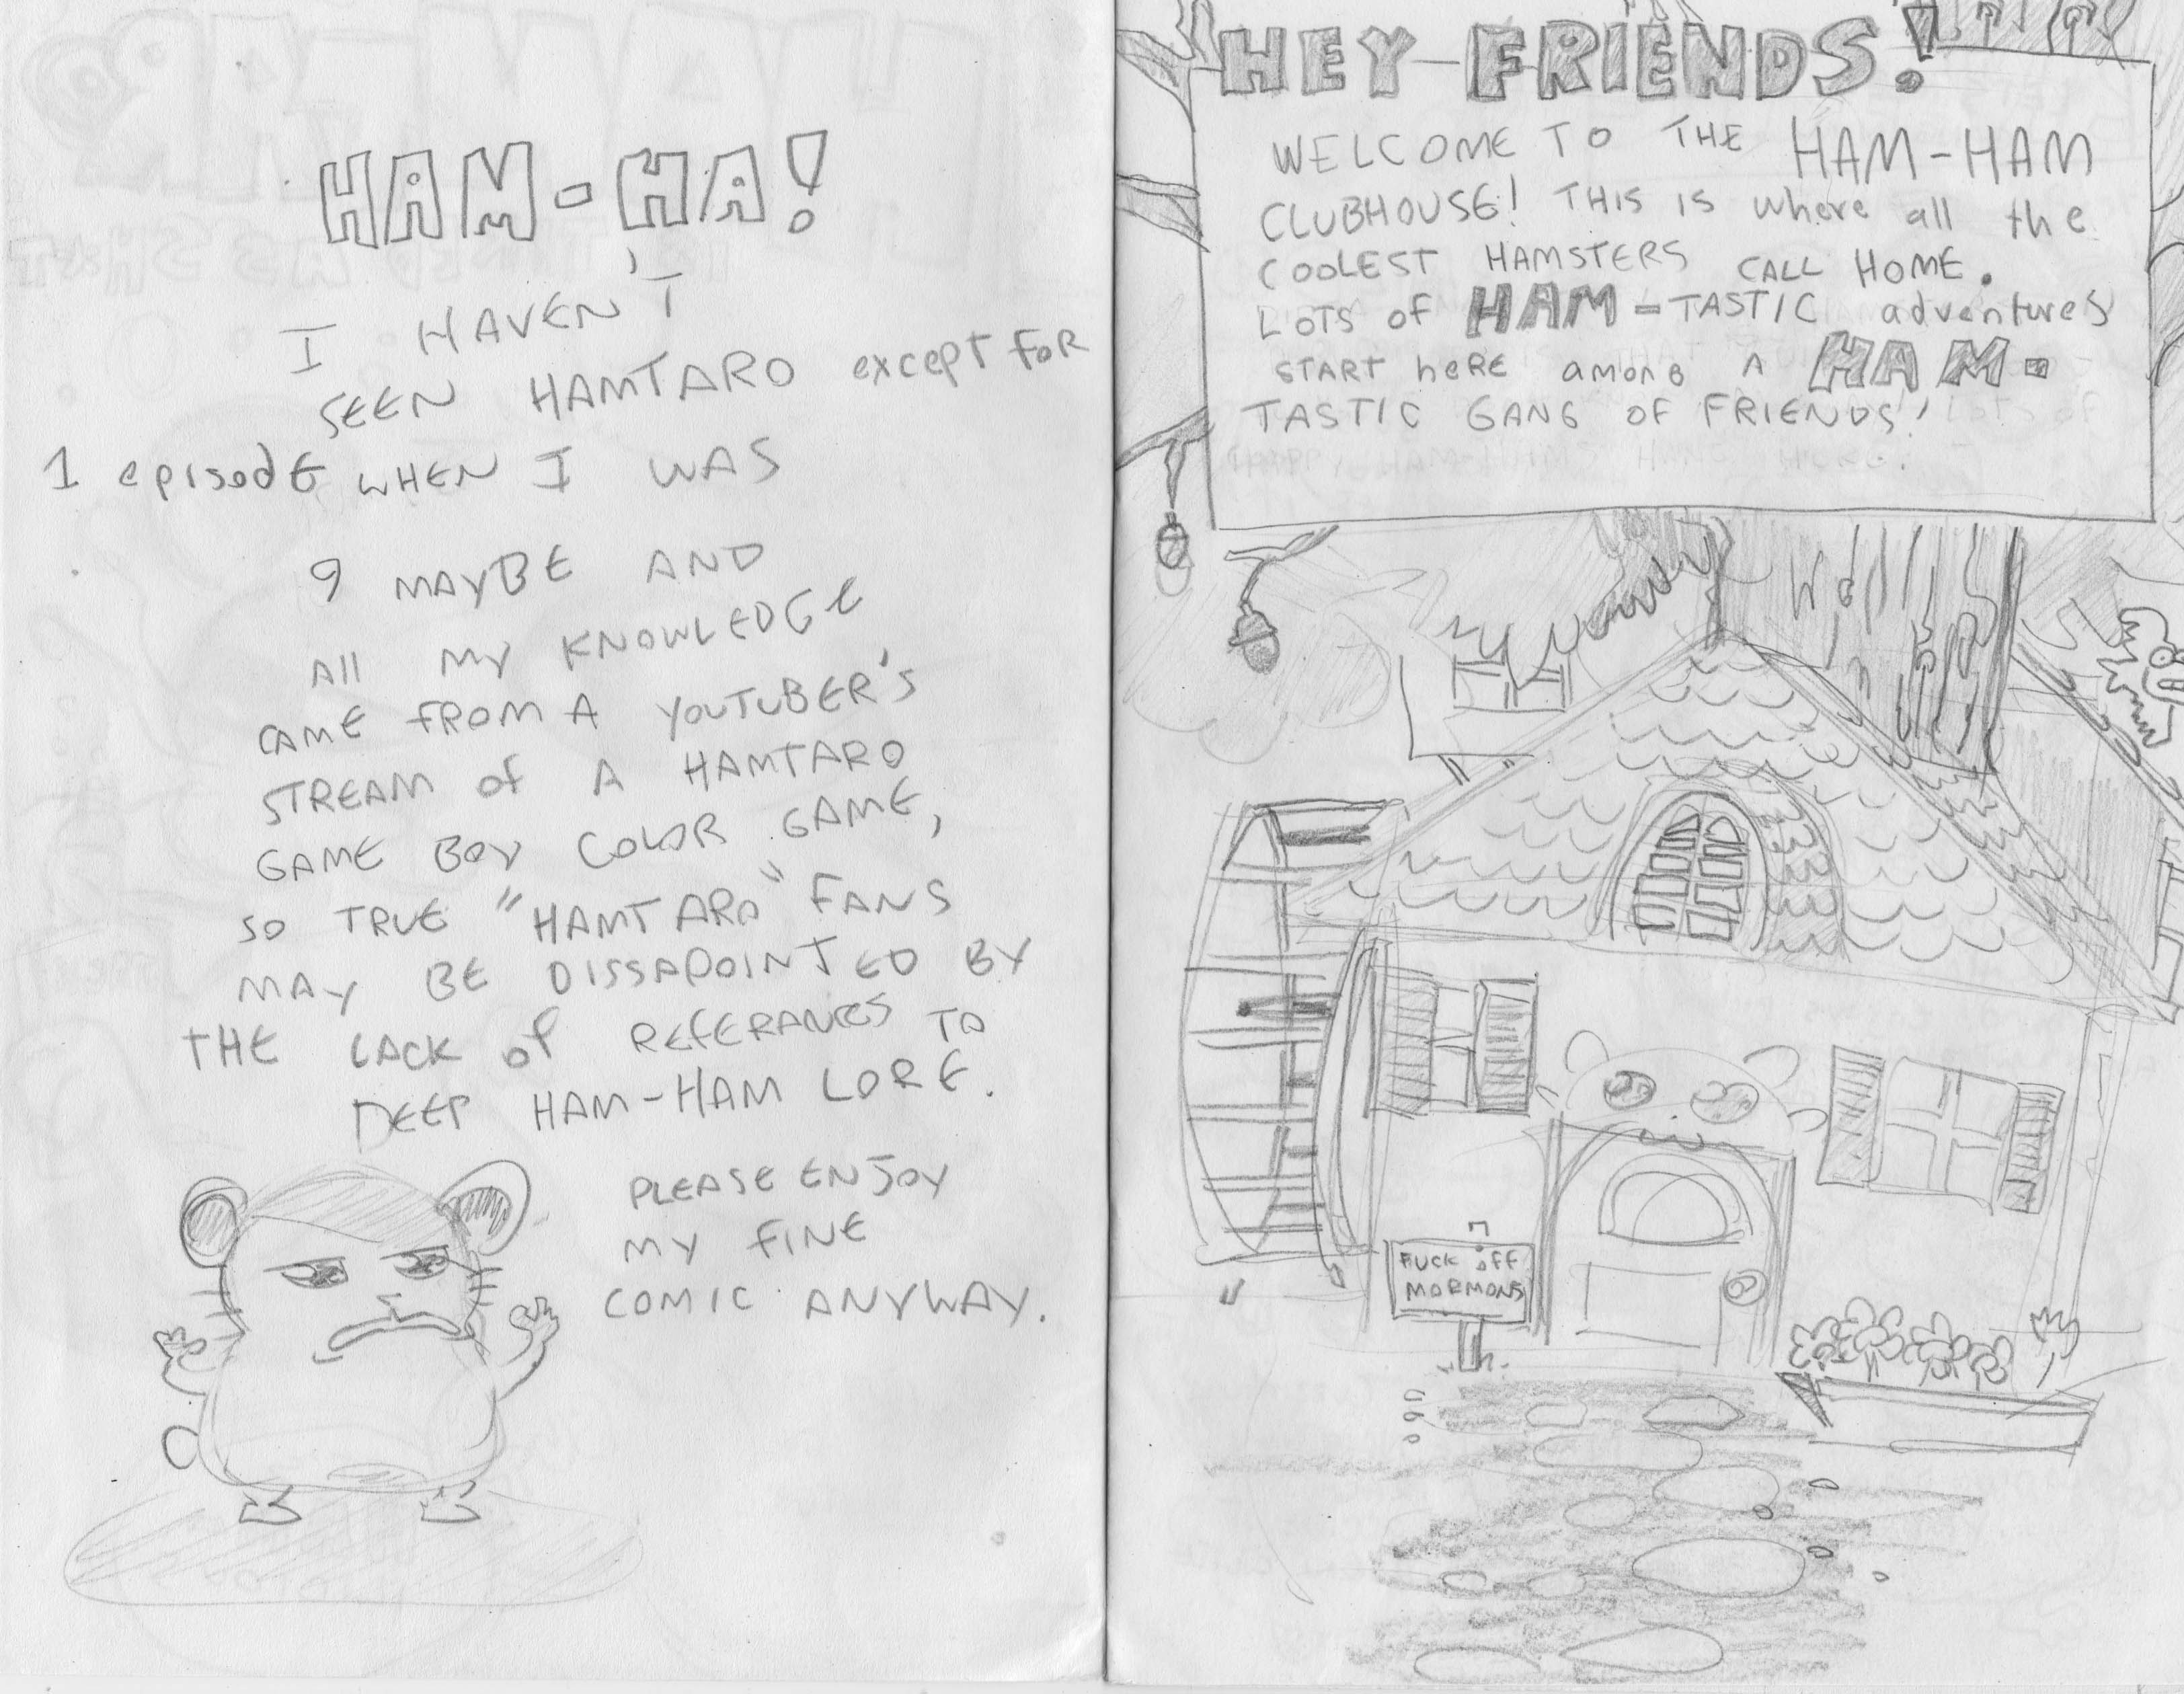 HAM-HA!
I HAVEN'T
SEEN HAMTARO except FOR
1 episode WHEN I WAS
9 MAYBE AND
All MY KNOWLEDGE
CAME FROM A YOUTUBER'S
STREAM of A HAMTARO
GAME BOY COLOR GAME,
SO TRUE "HAMTARO" FANS
MAY BE DISSAPOINTED BY
THE LACK of REFERANCES TO
DEEP HAM-HAM LORE.
PLEASE ENJOY
MY FINE
COMIC ANYWAY.
HEY FRIENDS!
WELCOME TO THE HAM-HAM
CLUBHOUSE! THIS IS where all the
COOLEST HAMSTERS CALL HOME.
LOTS of HAM-TASTIC adventures
START heRE among A HAM-
TASTIC GANG OF FRIENDS!
FUCK OFF
MORMONS